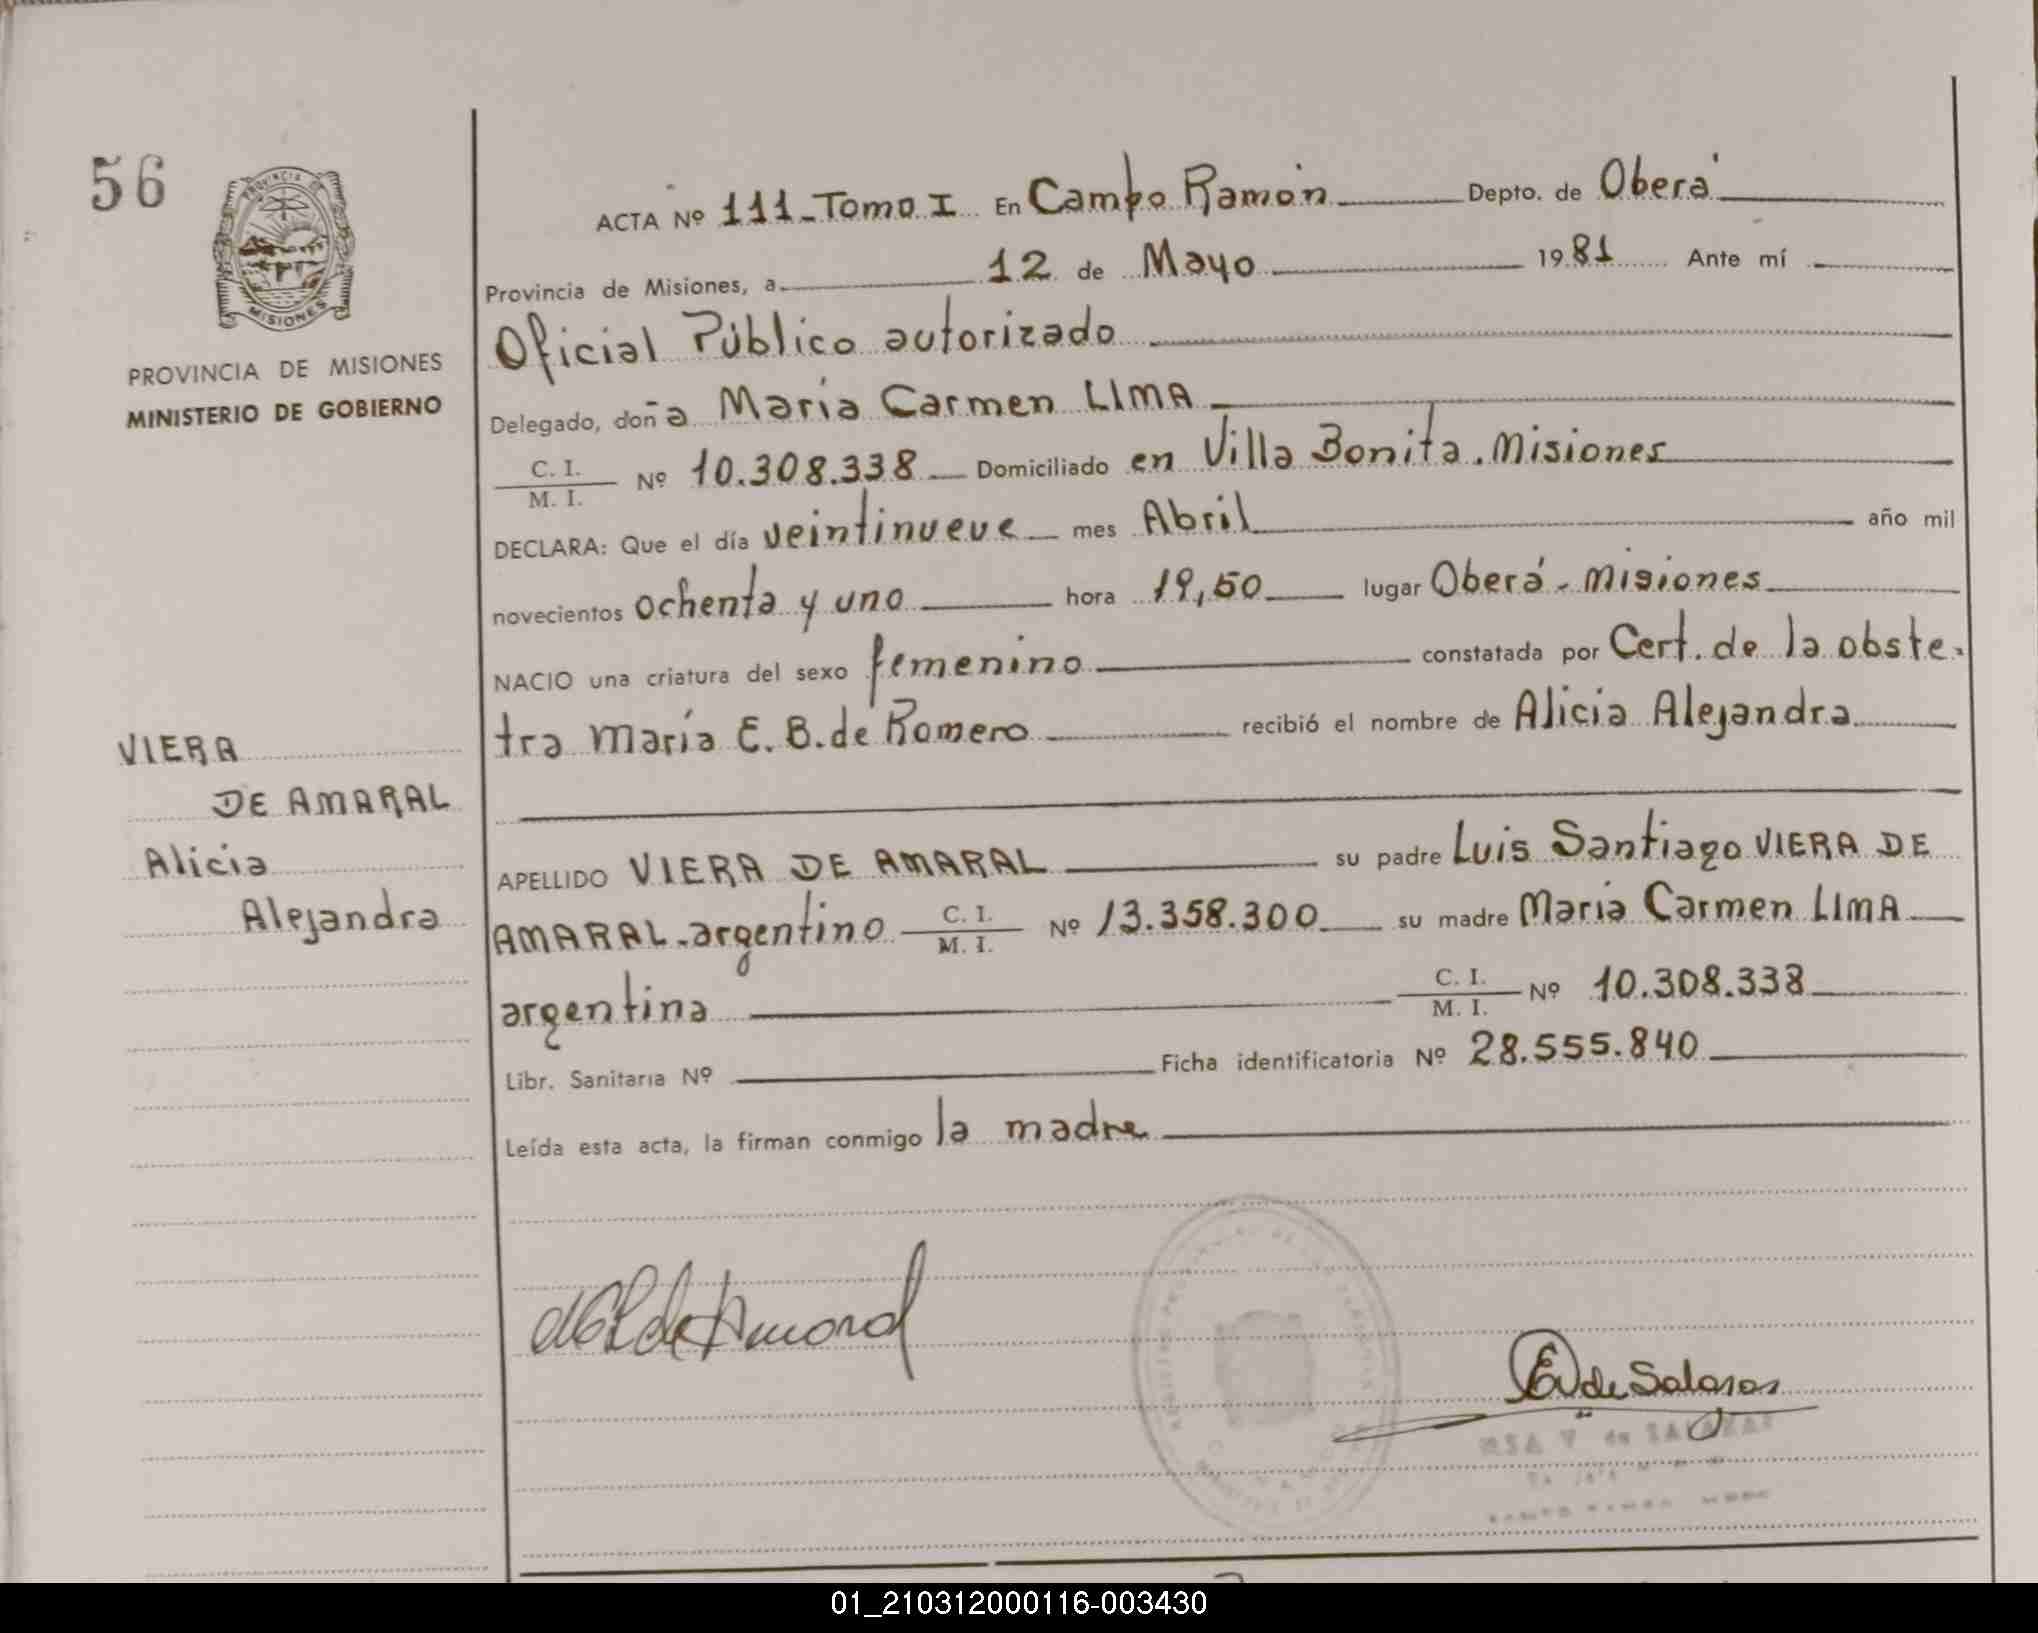 56
PROVINCIA DE
MISIONES
PROVINCIA DE MISIONES
MINISTERIO DE GOBIERNO
VIERA
DE AMARAL
Alicia
Alejandra
ACTA Nº 111-Tomo I En Campo Ramón Depto. de Oberá
Provincia de Misiones, a 12 de Mayo 1981 Ante mí
Oficial Público autorizado
Delegado, doña María Carmen LIMA
C. I.
M. I. Nº 10.308.338 Domiciliado en Villa Bonita. Misiones
DECLARA: Que el día veintinueve mes Abril año mil
novecientos ochenta y uno hora 19,50 lugar Oberá - Misiones
NACIO una criatura del sexo femenino constatada por Cert. de la obste-
tra María E. B. de Romero recibió el nombre de Alicia Alejandra
APELLIDO VIERA DE AMARAL su padre Luis Santiago VIERA DE
AMARAL - argentino C. I. M. I. Nº 13.358.300 su madre María Carmen LIMA
argentina C. I. M. I. Nº 10.308.338
Libr. Sanitaria Nº Ficha identificatoria Nº 28.555.840
Leída esta acta, la firman conmigo la madre
de Amaral
de Salazar
V de SALAZAR
01_210312000116-003430